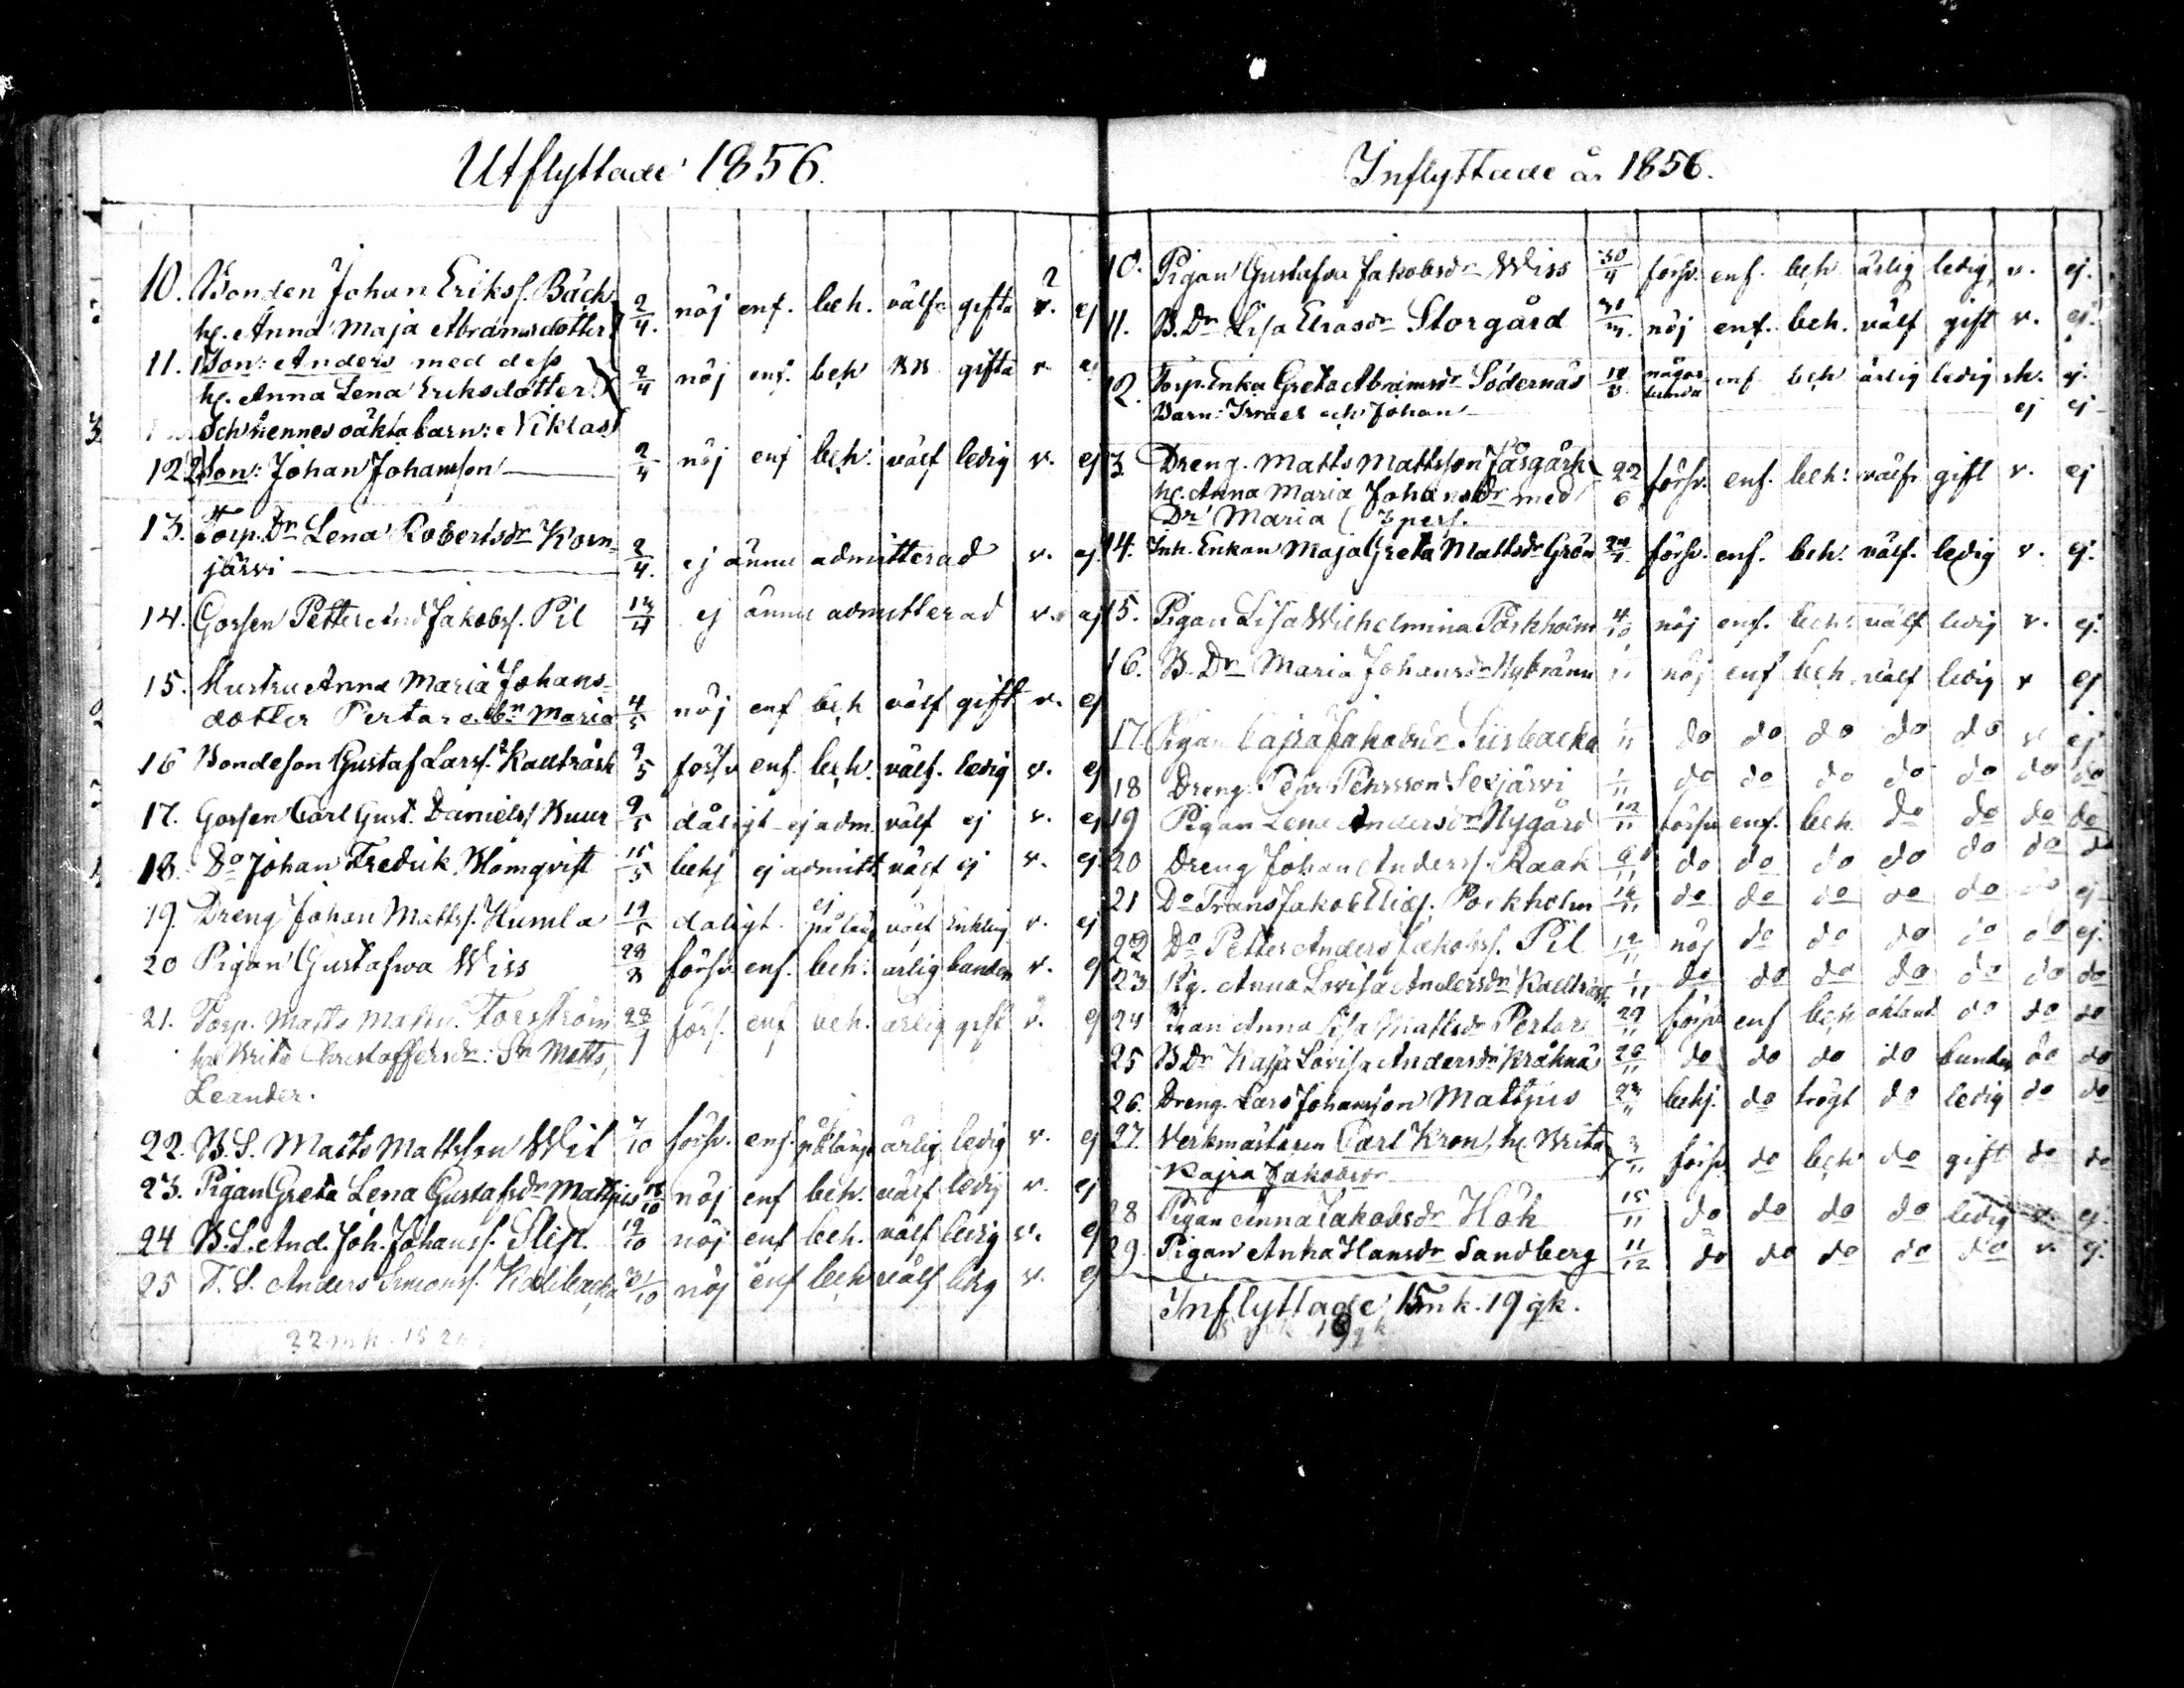 Utflyttade 1856.
10. Bonden Johan Erikss. Bäck 2/4. nöj enf. beh. välf. gifta v. ej
h. Anna Maja Abramsdotter
11. Son: Anders med dess 2/4 nöj enf. beh gifta v. ej
h. Anna Lena Eriksdotter
och hennes oäkta barn: Niklas
12 Son: Johan Johansson 2/4 nöj enf beh. välf ledig v. ej
13. Torp. Dr Lena Robertsdr Korn-
järvi 2/4. ej ännu admitterad v. ej
14. Gossen Petter And Jakobss. Pil 13/4 ej ännu admitterad v. ej
15. Hustru Anna Maria Johans-
dotter Pertar o. bn Maria 4/5 nöj enf beh välf gift v. ej
16 Bondeson Gustaf Larss. Kaelträsk 9/5 försv enf. beh. välf. ledig v. ej
17. Gossen Carl Gust. Danielss Buur 9/5 dåligt ej adm. välf ej v. ej
18. Do Johan Fredrik Blomqvist 15/5 behj ej admitt välf ej v. ej
19. Dreng Johan Mattss. Humla 19/5 dåligt. ej på läng välf Enkling v. ej
20 Pigan Gustafwa Wiss 28/8 försv enf. beh. ärlig bunden v. ej
21. Torp. Matts Matts. Forsström 28/9 förs. enf beh. ärlig gift v. ej
h. Brita Christoffersdr: Sn Matts,
Leander.
22. B. S. Matts Mattsson Wit 7/10 försv. enf. på länge ärlig ledig v. ej
23. Pigan Greta Lena Gustafsdr Mattjus 18/10 nöj enf beh. välf ledig v. ej
24 B. S. And. Joh. Johanss. Slip. 19/10 nöj enf beh. välf ledig v. ej
25 T. S. Anders Simonss. Kallbacka 31/10 nöj enf beh välf ledig v. ej
22 mk. 15
Inflyttade år 1856.
10. Pigan Gustafva Jakobsdr Wiss 30/4 försv. enf. beh ärlig ledig v. ej.
11. B. Dr Lisa Eliasdr Storgård nöj enf. beh. välf gift v. ej.
12. Torp. Enka Greta Abramsdr Södernäs någor lunda enf beh ärlig ledig ej.
Barn: Israel och Johan ej ej
13 Dreng. Matts Mattsson Påsgårk 22/6 försv. enf. beh: välfr gift v. ej
h. Anna Maria Johansdr med
Dr Maria 3 pers.
14. Inh. Enkan Maja Greta Mattsdr Grön försv. enf. beh. välf. ledig v. ej.
15. Pigan Lisa Wilhelmina Porkholm 4/10 nöj enf. beh: välf ledig v. ej.
16. B. Dr Maria Johansdr Nybränn 1/11 nöj enf beh. välf ledig v ej
17. Pigan Cajsa Jakobsdr Sursbacka 1/11 do do do do do v ej
18 Dreng Pehr Pehrsson Sexjärvi 1/11 do do do do do do do
19 Pigan Lena Andersdr Nygård 12/11 försv enf. beh do do do do
20 Dreng Johan Anderss. Raak 6/11 do do do do do do do
21 Do Frans Jakob Elias. Porkholm 16/11 do do do do do do ej
22 Do Petter Anders Jakobss. Pil 12/11 nöj do do do do do ej.
23 Pig. Anna Lovisa Andersdr Kaelträsk 1/11 do do do do do do do
24 Pigan Anna Lisa Mattsdr Pertar 29/11 försv enf beh okland do do do
25 B Dr Kajsa Lovisa Andersdr Kråknäs 26/11 do do do do bunden do do
26. Dreng. Lars Johansson Mattjus behj. do trögt do ledig do do
27. Verkmästaren Carl Kron, h. Brita 3/11 försv do beh do gift do do
Kajsa Jakobsdr
28 Pigan Anna Jakobsdr Hök 15/11 do do do do ledig v. ej.
29. Pigan Anna Hansdr Sandberg 11/12 do do do do do v. ej.
Inflyttade 15 mk. 19 qk.